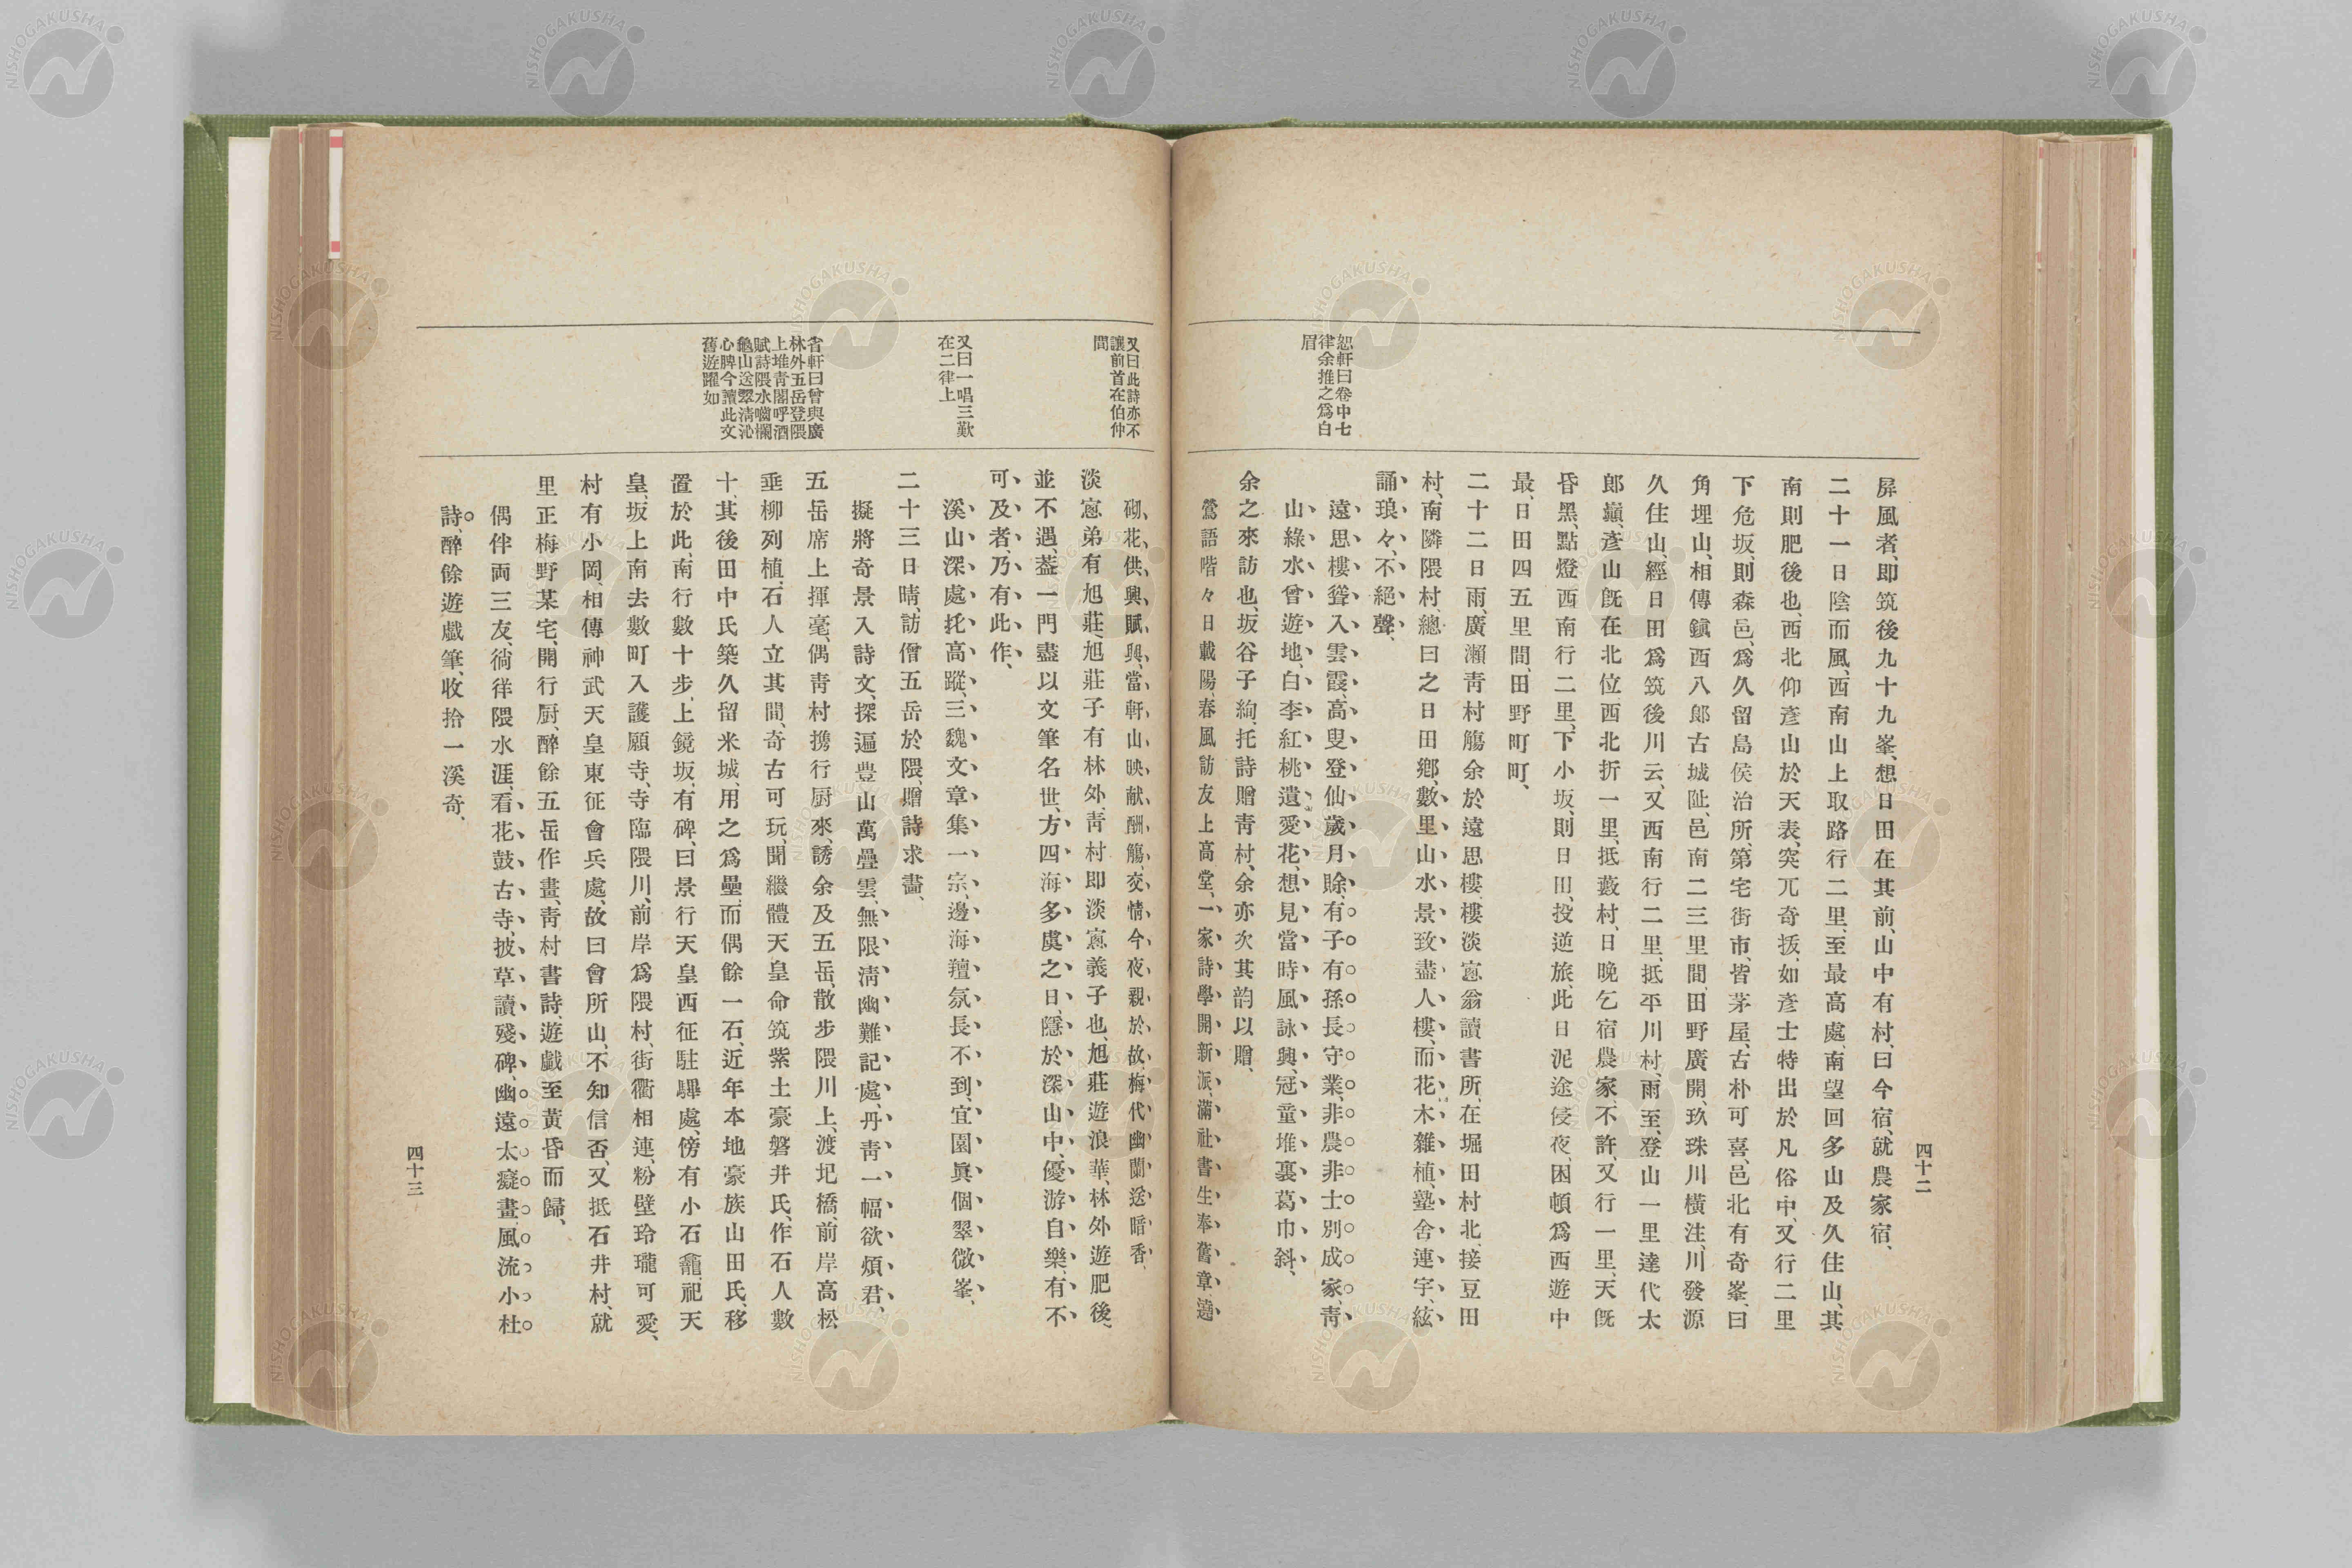 恕軒曰卷中七
律余推之爲白
眉
屏風者、卽筑後九十九峯、想日田在其前、山中有村、曰今宿、就農家宿、
二十一日陰而風、西南山上取路行二里、至最高處、南望回多山及久住山、其
南則肥後也、西北仰彥山於天表、突兀奇拔、如彥士特出於凡俗中、又行二里
下危坂、則森邑、爲久留島侯治所、第宅街市、皆茅屋、古朴可喜、邑北有奇峯、曰
角埋山、相傳鎭西八郞古城阯、邑南二三里間、田野廣開、玖珠川橫注、川發源
久住山、經日田爲筑後川云、又西南行二里、抵平川村、雨至、登山一里達代太
郞巓、彥山旣在北位西北折一里、抵藪村、日晚乞宿農家、不許、又行一里、天旣
昏黑、點燈西南行二里、下小坂、則日田、投逆旅、此日泥途侵夜、困頓爲西遊中
最、日田四五里間、田野町町、
二十二日雨、廣瀨靑村觴余於遠思樓、樓淡窻翁讀書所、在堀田村北、接豆田
村、南隣隈村、總曰之日田鄕、數里山水景致盡人樓、而花木雜植、塾舍連宇、絃
誦琅々、不絕聲、
遠思樓聳入雲霞、高叟登仙歲月賖、有子有孫長守業、非農非士別成家、靑
山綠水曾遊地、白李紅桃遺愛花、想見當時風詠興、冠童堆裏葛巾斜、
余之來訪也、坂谷子絢、托詩贈靑村、余亦次其韵以贈、
鶯語喈々日載陽、春風訪友上高堂、一家詩學開新派、滿社書生奉舊章、遶
四十二
又曰此詩亦不
讓前首在伯仲
間
又曰一唱三歎
在二律上
省軒曰曾與廣
林外五岳登隈
上堆靑閣呼酒
賦詩隈水囓欄
龜山送翠淸沁
心脾今讀此文
舊遊躍如
砌花供興賦興、當軒山映献酬觴、交情今夜親於故、梅代幽蘭送暗香、
淡窻弟有旭莊、旭莊子有林外、靑村卽淡窻義子也、旭莊遊浪華、林外遊肥後、
並不遇、蓋一門盡以文筆名世、方四海多虞之日、隱於深山中、優游自樂、有不
可及者、乃有此作、
溪山深處托高蹤、三魏文章集一宗、邊海羶氛長不到、宜園眞個翠微峯、
二十三日晴、訪僧五岳於隈、贈詩求畵、
擬將奇景入詩文、探遍豊山萬疊雲、無限淸幽難記處、丹靑一幅欲煩君、
五岳席上揮毫、偶靑村携行厨來、誘余及五岳、散步隈川上、渡圯橋、前岸高松
垂柳列植、石人立其間、奇古可玩、聞繼體天皇命筑紫土豪磐井氏、作石人數
十、其後田中氏築久留米城、用之爲壘、而偶餘一石、近年本地豪族山田氏、移
置於此、南行數十步、上鏡坂、有碑、曰景行天皇西征駐驆處、傍有小石龕、祀天
皇、坂上南去數町入護願寺、寺臨隈川、前岸爲隈村、街衢相連、粉壁玲瓏可愛、
村有小岡、相傳神武天皇東征會兵處、故曰會所山、不知信否、又抵石井村、就
里正梅野某宅、開行厨、醉餘五岳作畫、靑村書詩、遊戲至黃昏而歸、
偶伴両三友、徜徉隈水涯、看花鼓古寺、披草讀殘碑、幽遠太癡畫、風流小杜
詩、醉餘遊戲筆、收拾一溪奇、
四十三